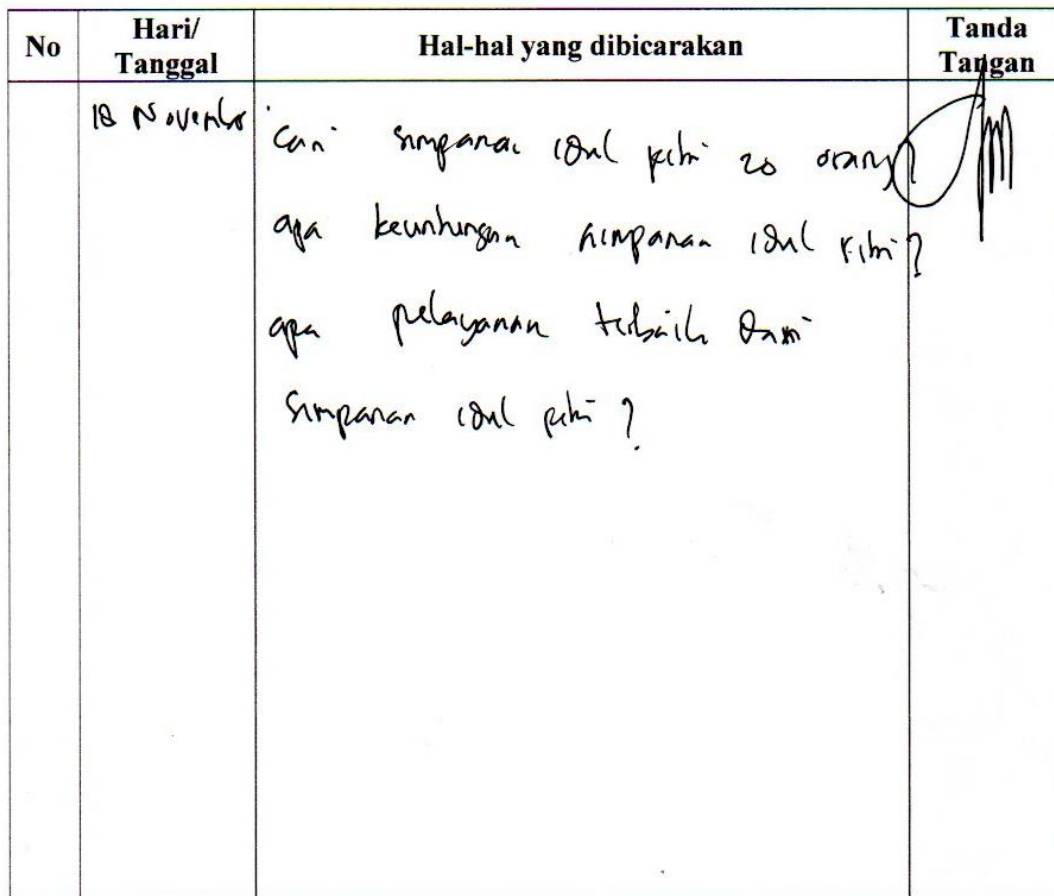 No
Hari/
Tanggal
Hal-hal yang dibicarakan
Tanda
Tangan
18 November
Cari simpanan idul fitri 20 orang
apa keuntungan simpanan idul fitri?
apa pelayanan terbaik dari
simpanan idul fitri ?